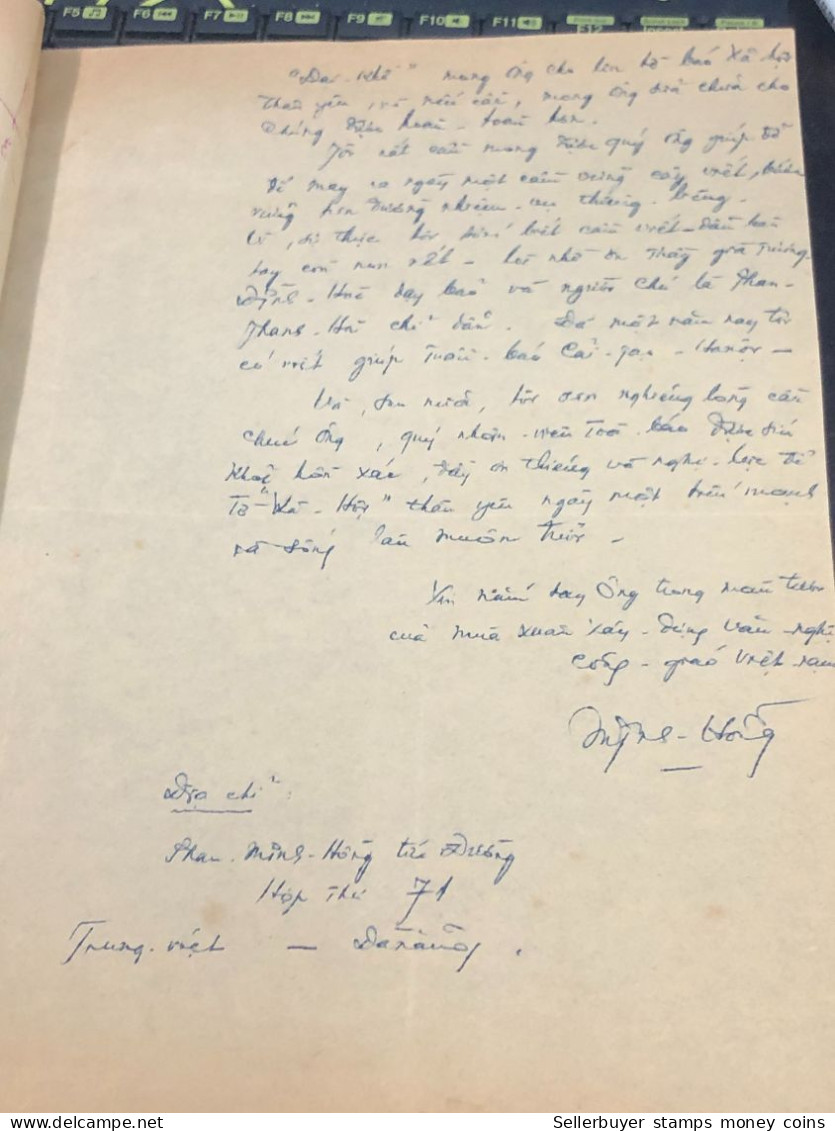 F5 F6 F7 F8 F9 F10 F11 F12
"Đai-Khê" mong ông cho lên tờ báo Xã hội
thân yêu, và nếu cần, mong ông sửa chữa cho
chúng được hoàn-toàn hơn.
Tôi rất cần mong được quý ông giúp đỡ
để may ra ngày một cầm vững cây viết,
vững hơn đường nhiệm-vụ thiêng-liêng.
Vì, sự thực tôi mới biết cầm viết
tay còn non nớt - lại nhờ ơn Thầy giáo Trương-
Đình-Hoè dạy bảo và người chú là Phan-
Thanh-Hà chỉ dẫn. Đã một năm nay tôi
có viết giúp tuần-báo Cải-tạo-Hanội-
Và, sau nữa, tôi xin nghiêng lòng cầu
chúc ông, quý nhân-viên Toà-báo được
khoẻ hồn xác, đầy ơn thiêng và nghị-lực để
Tờ "Xã-Hội" thân yêu ngày một tiến mạnh
và sống lâu muôn tuổi-
Xin nắm tay Ông trong
của mùa xuân xây-dựng văn-nghệ
Công-giáo Việt-nam
Minh-Hồng
Địa chỉ:
Phan-Minh-Hồng tức Đường
Hộp Thư 71
Trung-việt - Đànẵng.
Sellerbuyer stamps money coins